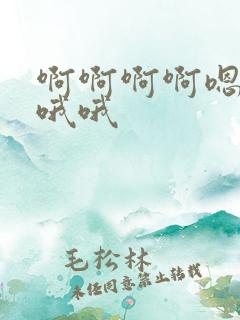 啊啊啊啊嗯
哦哦
毛松林
未经同意禁止转载